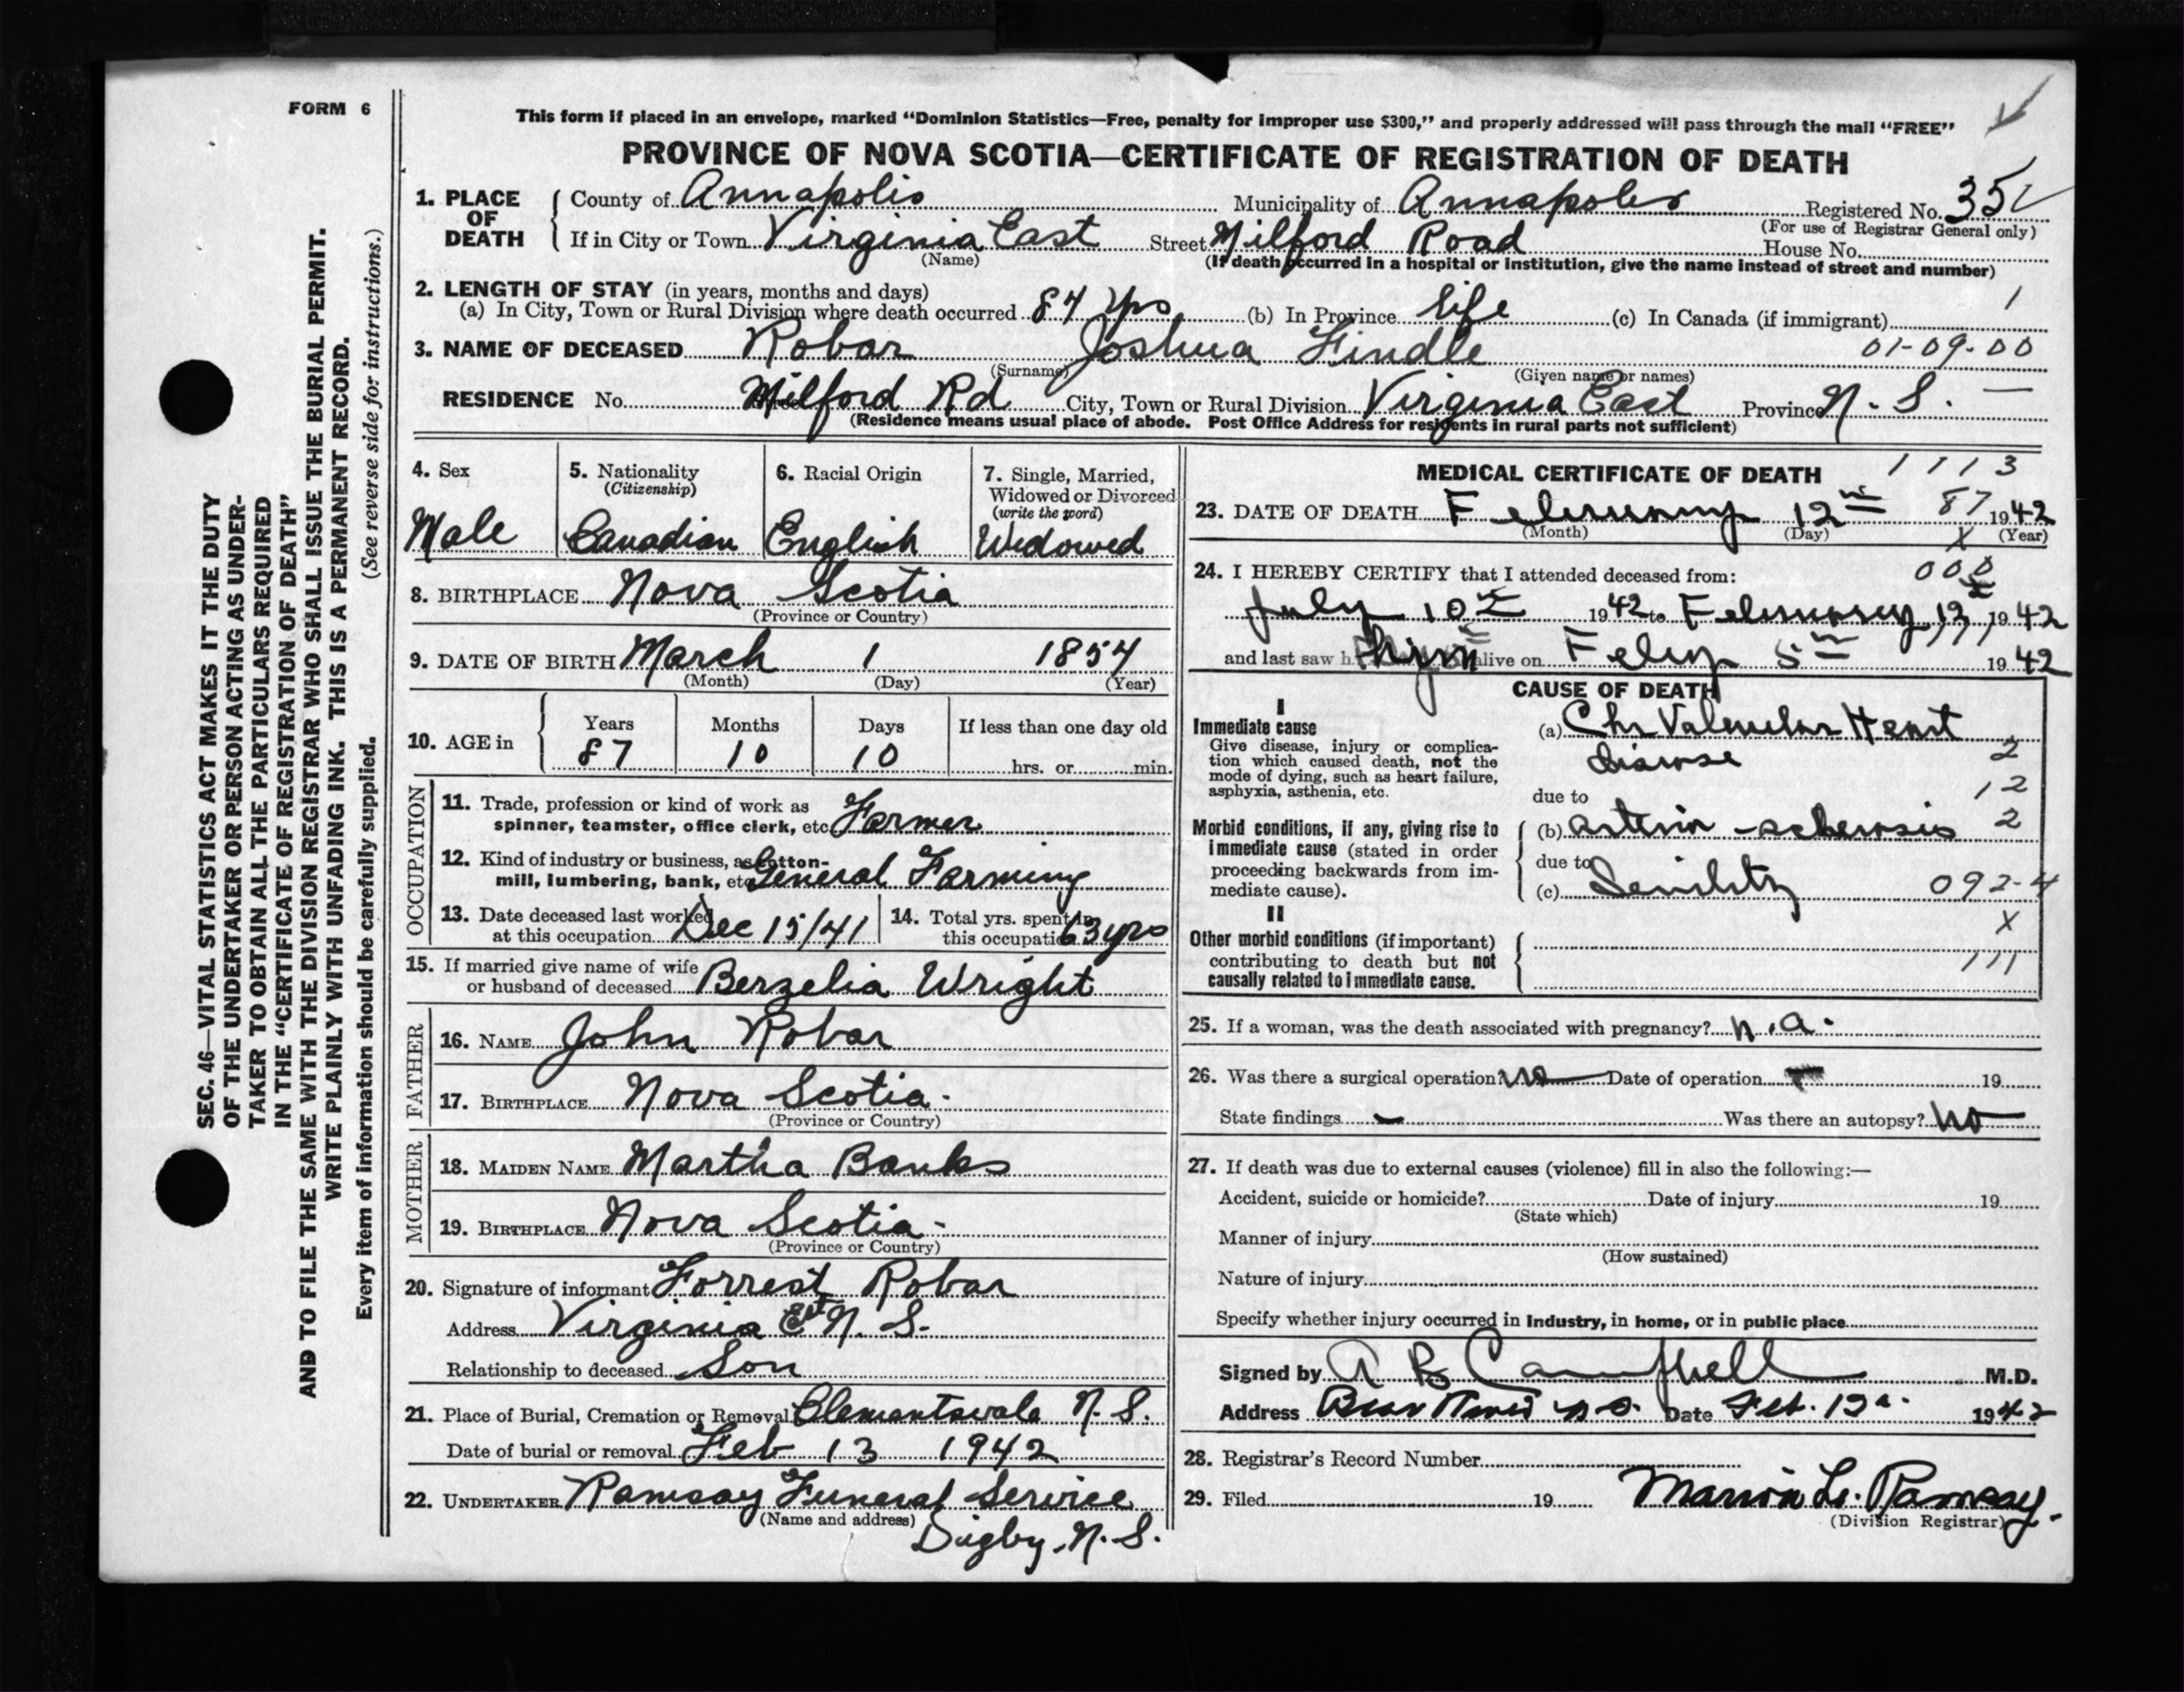 FORM 6
This form if placed in an envelope, marked “Dominion Statistics—Free, penalty for improper use $300,” and properly addressed will pass through the mail “FREE”
PROVINCE OF NOVA SCOTIA—CERTIFICATE OF REGISTRATION OF DEATH
SEC. 46—VITAL STATISTICS ACT MAKES IT THE DUTY
OF THE UNDERTAKER OR PERSON ACTING AS UNDER-
TAKER TO OBTAIN ALL THE PARTICULARS REQUIRED
IN THE “CERTIFICATE OF REGISTRATION OF DEATH”
AND TO FILE THE SAME WITH THE DIVISION REGISTRAR WHO SHALL ISSUE THE BURIAL PERMIT.
WRITE PLAINLY WITH UNFADING INK. THIS IS A PERMANENT RECORD.
Every item of information should be carefully supplied. (See reverse side for instructions.)
1. PLACE OF DEATH County of Annapolis Municipality of Annapolis Registered No. 35
(For use of Registrar General only)
If in City or Town Virginia East Street Milford Road House No.
(Name) (If death occurred in a hospital or institution, give the name instead of street and number)
2. LENGTH OF STAY (in years, months and days)
(a) In City, Town or Rural Division where death occurred 84 yrs (b) In Province life (c) In Canada (if immigrant) 1
3. NAME OF DECEASED Robar Joshua Findle 01-09-00
(Surname) (Given name or names)
RESIDENCE No. Milford Rd City, Town or Rural Division Virginia East Province N. S. —
(Residence means usual place of abode. Post Office Address for residents in rural parts not sufficient)
4. Sex
Male
5. Nationality
(Citizenship)
Canadian
6. Racial Origin
English
7. Single, Married,
Widowed or Divorced
(write the word)
Widowed
8. BIRTHPLACE Nova Scotia
(Province or Country)
9. DATE OF BIRTH March 1 1854
(Month) (Day) (Year)
10. AGE in
Years Months Days If less than one day old
87 10 10 hrs. or min.
OCCUPATION
11. Trade, profession or kind of work as
spinner, teamster, office clerk, etc. Farmer
12. Kind of industry or business, as cotton-
mill, lumbering, bank, etc. General Farming
13. Date deceased last worked
at this occupation Dec 15/41
14. Total yrs. spent in
this occupation 63 yrs
15. If married give name of wife
or husband of deceased Berzelia Wright
FATHER
16. NAME John Robar
17. BIRTHPLACE Nova Scotia.
(Province or Country)
MOTHER
18. MAIDEN NAME Martha Banks
19. BIRTHPLACE Nova Scotia-
(Province or Country)
20. Signature of informant Forrest Robar
Address Virginia Est N. S.
Relationship to deceased Son
21. Place of Burial, Cremation or Removal Clementsvale N. S.
Date of burial or removal Feb 13 1942
22. UNDERTAKER Ramsay Funeral Service
(Name and address) Digby, N. S.
MEDICAL CERTIFICATE OF DEATH 1113
23. DATE OF DEATH February 12th 87 1942
(Month) (Day) X (Year)
24. I HEREBY CERTIFY that I attended deceased from: 000
July 10th 1942 to February 12th 1942
and last saw him alive on Feby 5th 1942
CAUSE OF DEATH
I
Immediate cause
Give disease, injury or complica-
tion which caused death, not the
mode of dying, such as heart failure,
asphyxia, asthenia, etc.
(a) Chr Valvular Heart
disease 2
due to 12
Morbid conditions, if any, giving rise to
immediate cause (stated in order
proceeding backwards from im-
mediate cause).
(b) arterio-sclerosis 2
due to
(c) Senility 092-4
II X
Other morbid conditions (if important)
contributing to death but not
causally related to immediate cause.
111
25. If a woman, was the death associated with pregnancy? n.a.
26. Was there a surgical operation? no Date of operation 19
State findings — Was there an autopsy? no
27. If death was due to external causes (violence) fill in also the following:—
Accident, suicide or homicide? Date of injury 19
(State which)
Manner of injury
(How sustained)
Nature of injury
Specify whether injury occurred in industry, in home, or in public place
Signed by A B Campbell M.D.
Address Bear River N.S. Date Feb. 12th 1942
28. Registrar's Record Number
29. Filed 19 Marion L. Ramsay.
(Division Registrar)